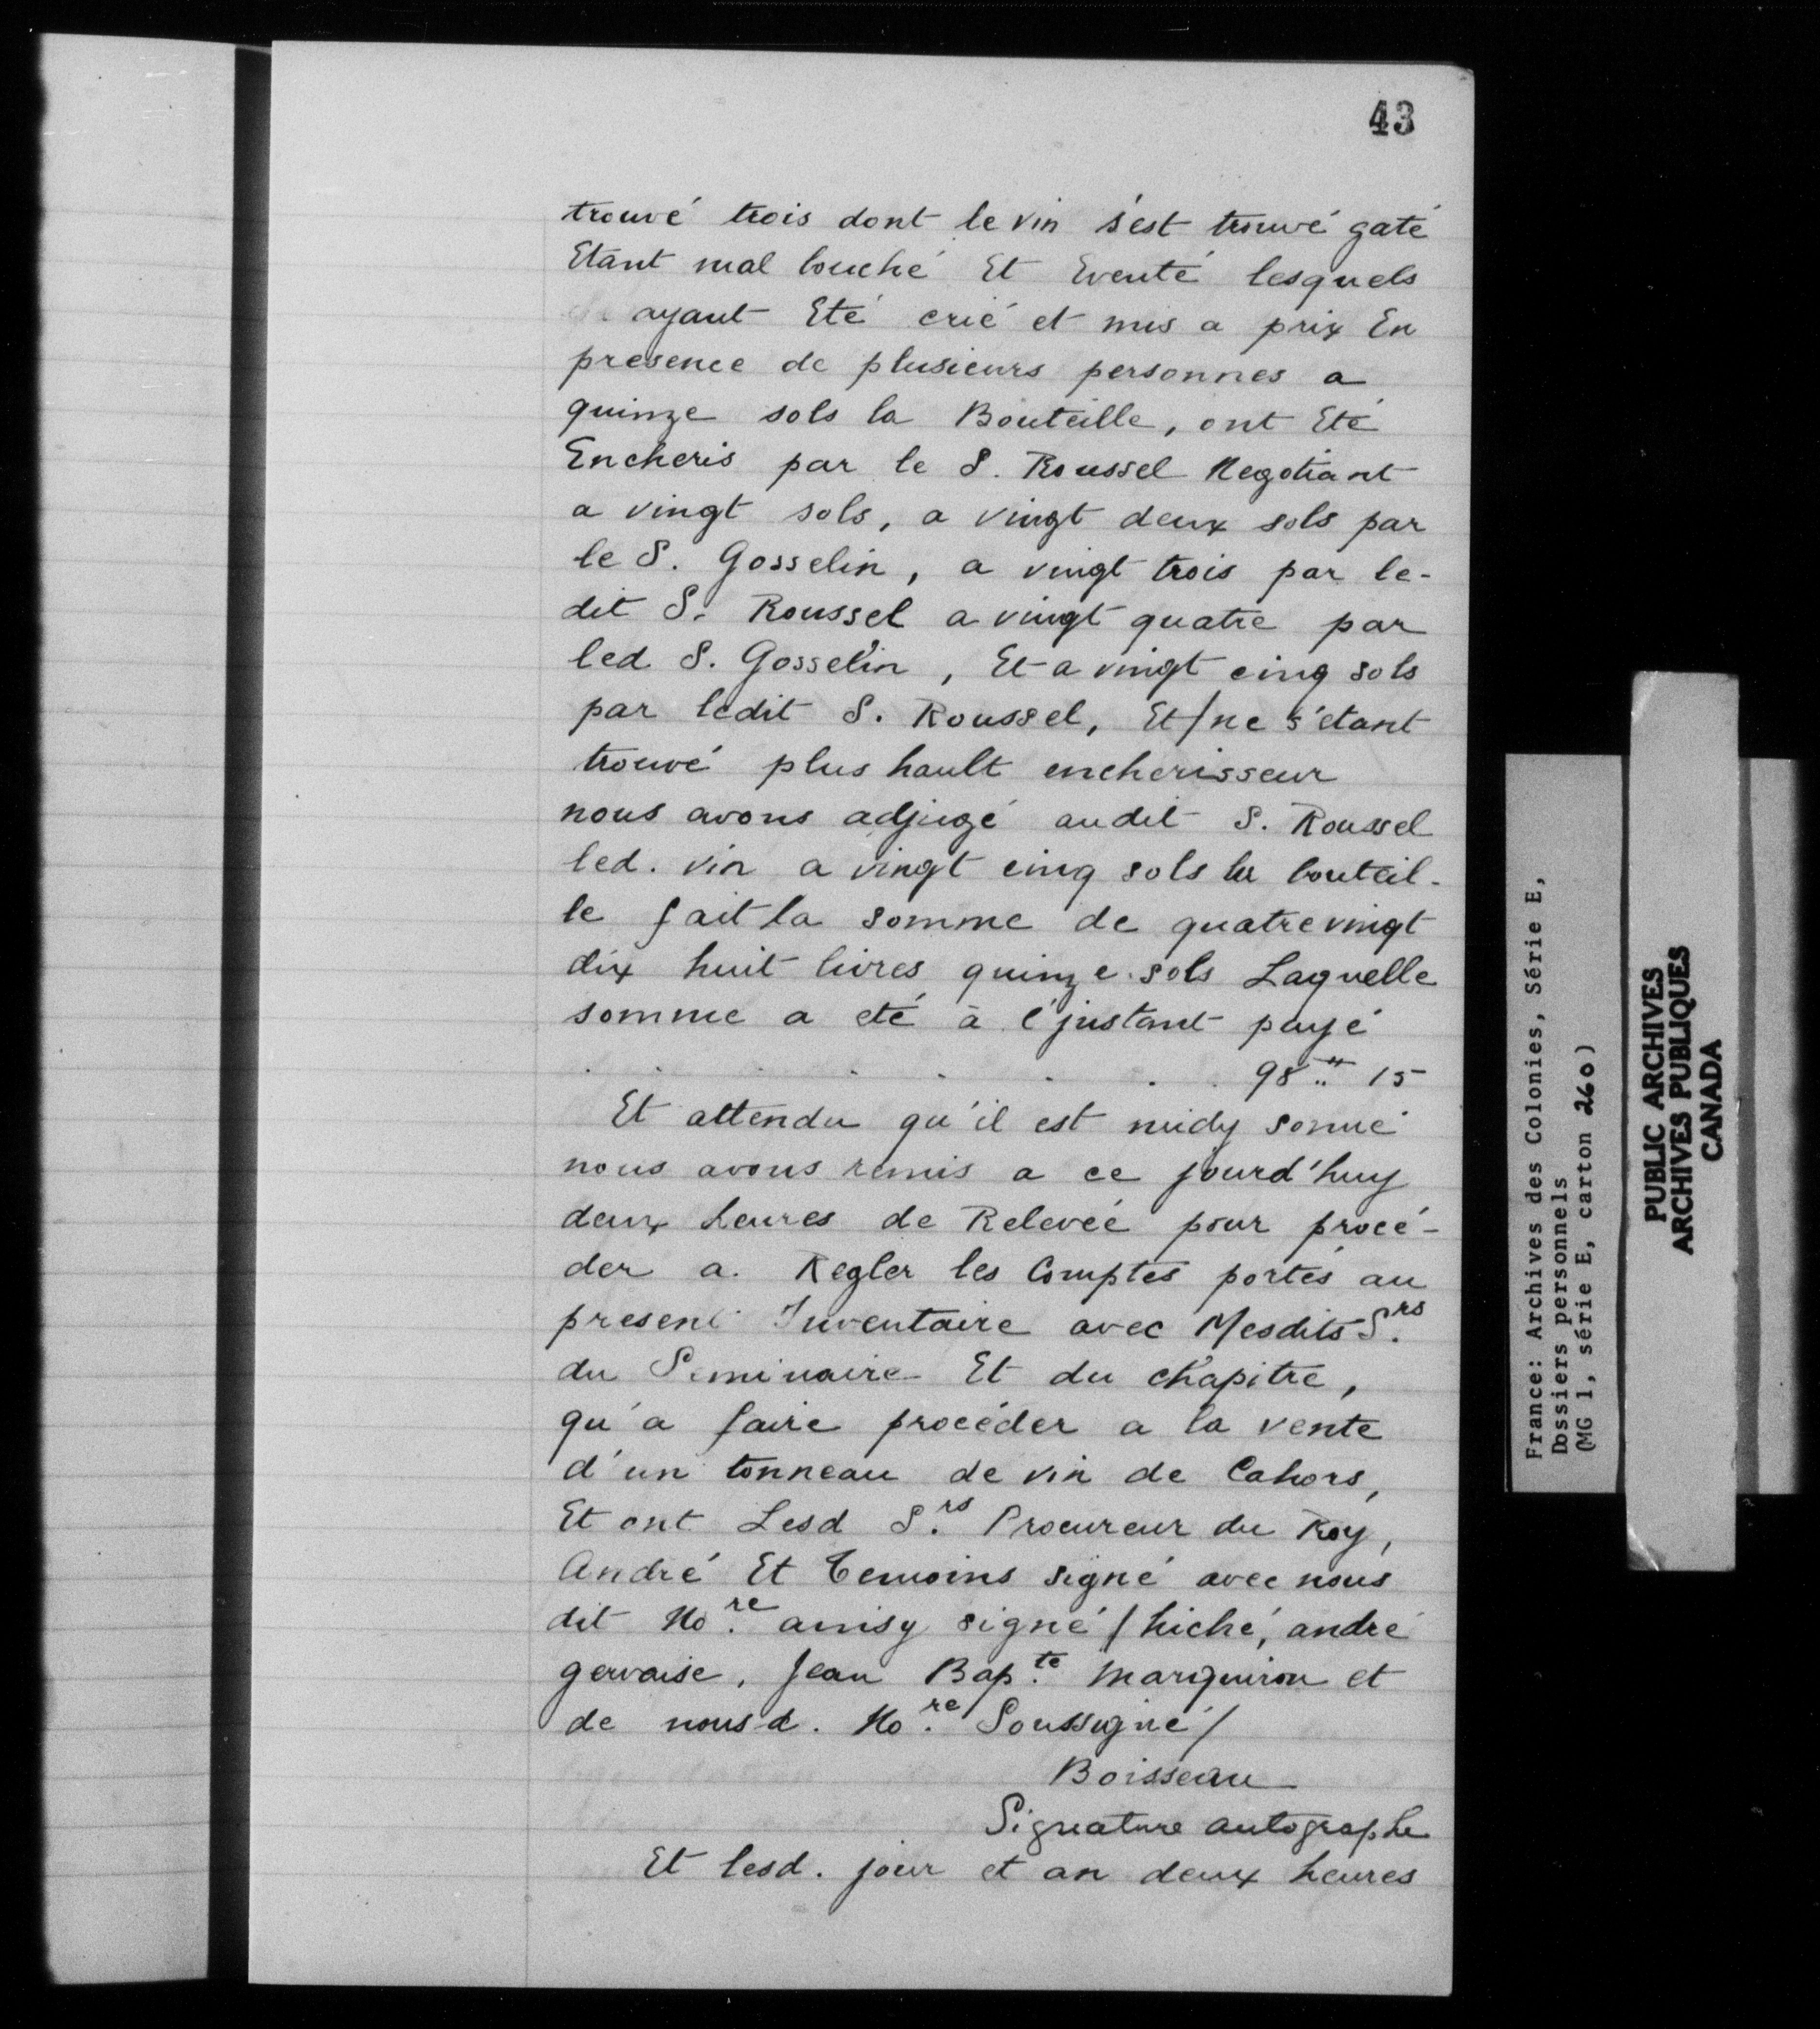 43
trouvé trois dont le vin s'est trouvé gaté
Etant mal bouché Et Eventé lesquels
ayant Eté crié et mis a prix En
presence de plusieurs personnes a
quinze sols la Bouteille, ont Eté
Encheris par le S. Roussel Negotiant
a vingt sols, a vingt deux sols par
le S. Gosselin, a vingt trois par le-
dit S. Roussel a vingt quatre par
led S. Gosselin, Et a vingt cinq sols
par ledit S. Roussel, Et/ne s'etant
trouvé plus hault encherisseur
nous avons adjugé audit S. Roussel
led. vin a vingt cinq sols la bouteil-
le fait la somme de quatre vingt
dix huit livres quinze sols Laquelle
somme a eté à l'justant payé
. . . . . . . 98" 15
Et attendu qu'il est midy sonné
nous avons remis a ce jourd'huy
deux heures de Relevéé pour procé-
der a. Regler les Comptes portés au
present Inventaire avec Mesdits S.rs
du Seminaire Et du chapitre,
qu'a faire procéder a la vente
d'un tonneau de vin de Cahors,
Et ont Lesd S.rs Procureur du Roy,
André Et Temoins signé avec nous
dit No.re ainsy signé / hiché, andré
gervaise, Jean Bap.te Marquiron et
de nousd. No.re Soussigné /
Boisseau
Signature autographe
Et lesd. jour et an deux heures
France: Archives des Colonies, Série E,
Dossiers personnels
(MG 1, série E, carton 260)
PUBLIC ARCHIVES
ARCHIVES PUBLIQUES
CANADA